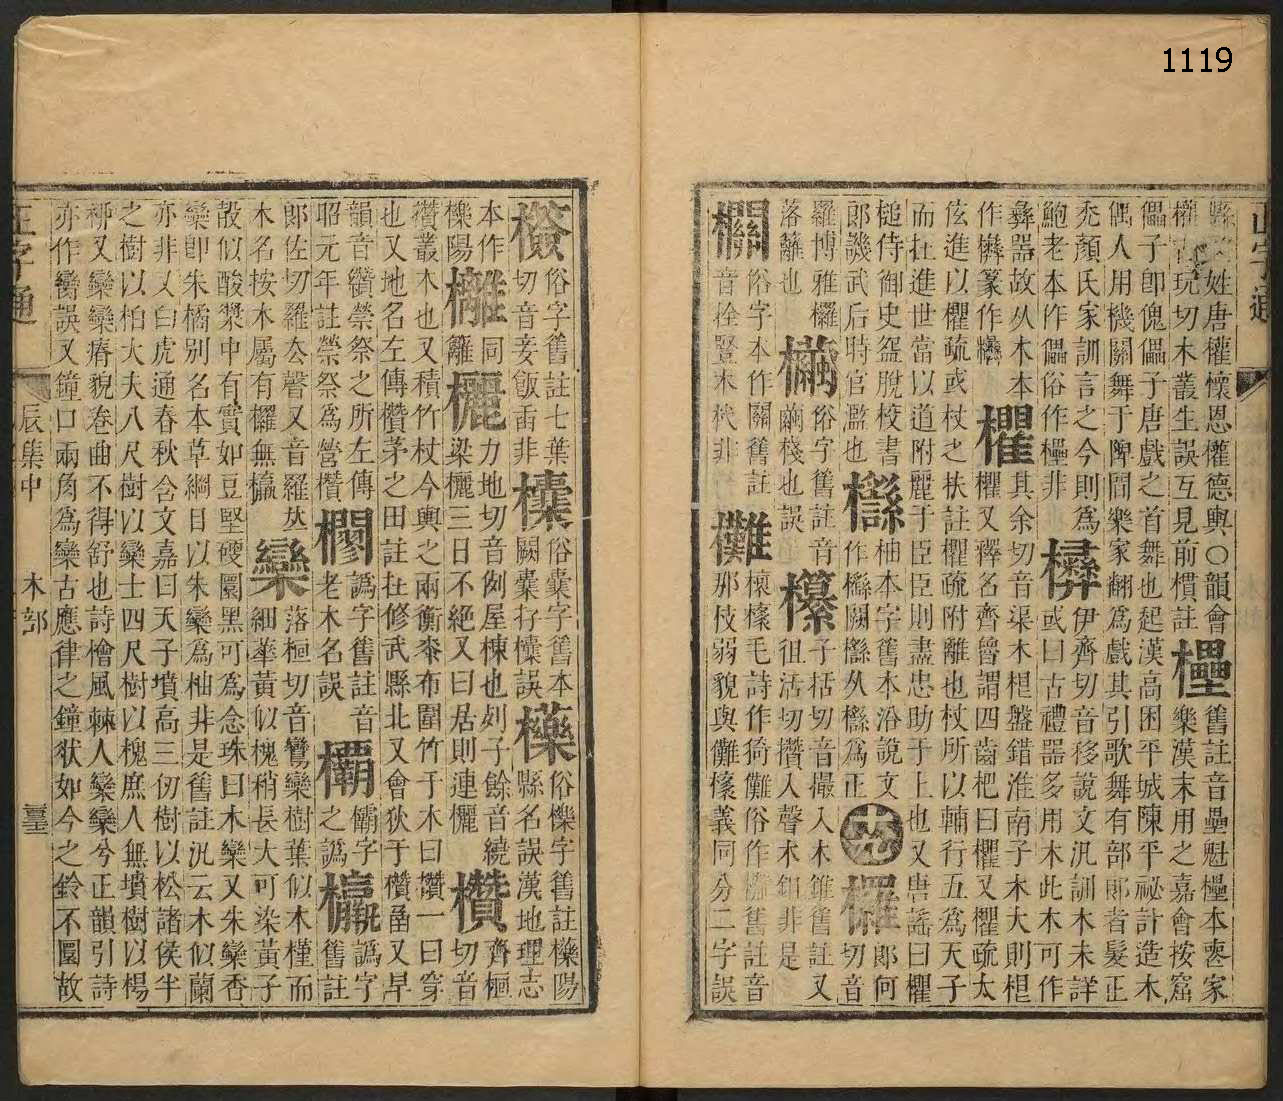 姓唐權懷恩權德輿○韻會玩切木叢生誤互見前慣註舊註音壘魁本喪家樂漢末用之嘉會按窟
儡子卽傀儡子唐戲之首舞也起漢高困平城陳平祕計造木偶人用機關舞于陴間樂家翻爲戲其引歌舞有部郞者髮正
禿顏氏家訓言之今則爲鮑老本作儡俗作非伊齊切音移說文汎訓木未詳或曰古禮器多用木此木可作
彝器故从木本作篆作欋其余切音渠木根盤錯淮南子木大則根欋又釋名齊魯謂四齒杷曰欋又欋疏太
伭進以欋疏或杖之扶註欋疏附離也杖所以輔行五爲天子而扗進世當以道附麗于臣臣則盡忠助于上也又唐謠曰欋
槌侍御史盌脫校書郞譏武后時官濫也柚本字舊本沿說文作闕繇从爲正欏郞何切音
羅博雅欏落籬也俗字舊註音繭棧也誤子栝切音撮入木錐舊註又徂活切攢入聲木非是
欄俗字本作關舊註音栓豎木非毛詩作猗儺俗作舊註音那枝弱貌與儺義同分二字誤
俗字舊註七葉切音妾飯臿非欜俗囊字舊本闕囊存欜誤俗櫟字舊註櫟陽縣名誤漢地理志
本作櫟陽同籬欐力地切音例屋棟也列子餘音繞梁欐三日不絕又曰居則連欐欑齊桓切音
攢叢木也又積竹杖今輿之兩衡桼布圍竹于木曰欑一曰穿也又地名左傳欑茅之田註扗修武縣北又會狄于欑圅又早
韻音纘禜祭之所左傳昭元年註禜祭爲營欑譌字舊註音老木名誤欛字之譌譌字舊註
郞佐切羅去聲又音羅炗木名按木屬有欏無欒落桓切音鸞欒樹葉似木槿而細蕐黃似槐稍長大可染黃子
殼似酸漿中有實如豆堅硬圜黑可爲念珠曰木欒又朱欒香欒卽朱橘別名本草綱目以朱欒爲柚非是舊註汎云木似蘭
亦非又白虎通春秋含文嘉曰天子墳高三仞樹以松諸侯半之樹以柏大夫八尺樹以欒士四尺樹以槐庶人無墳樹以楊
柳又欒欒瘠貌卷曲不得舒也詩檜風棘人欒欒兮正韻引詩亦作臠誤又鐘口兩角爲欒古應律之鐘狀如今之鈴不圜故
正字通
辰集中 木部
1119